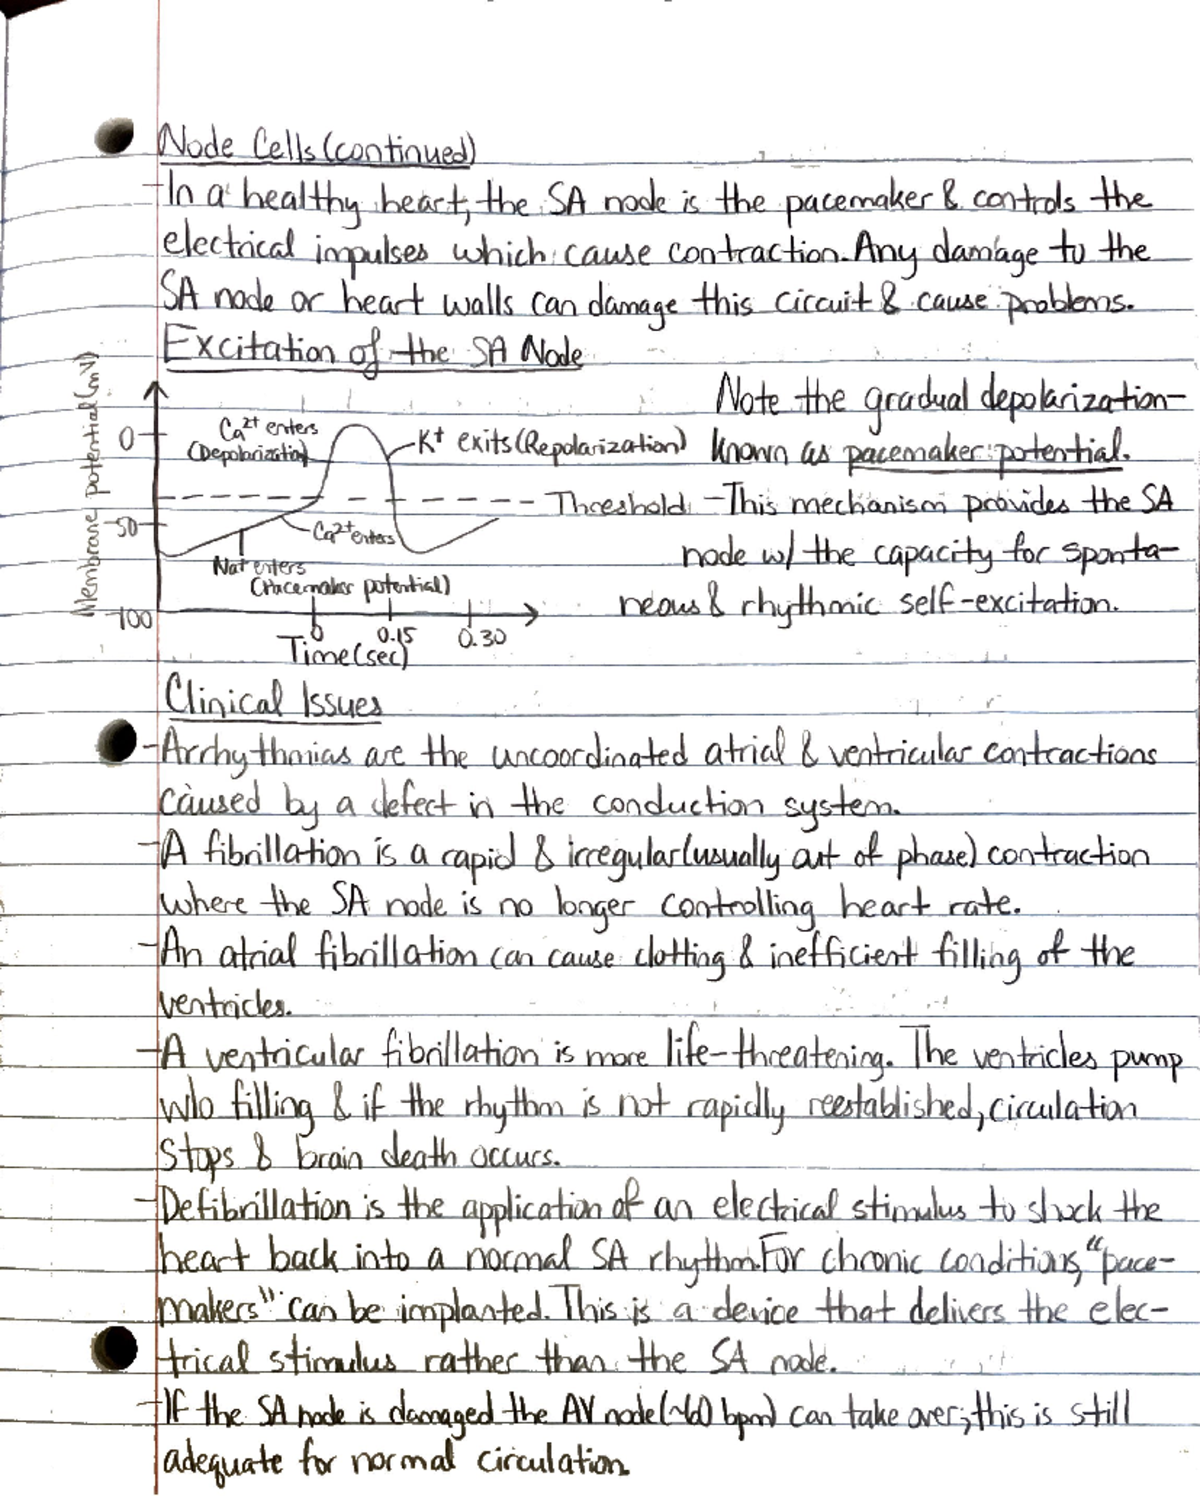 Node Cells (continued)
-In a healthy heart, the SA node is the pacemaker & controls the
electrical impulses which cause contraction. Any damage to the
SA node or heart walls can damage this circuit & cause problems.
Excitation of the SA Node
Membrane potential (mV)
0
-50
-100
Ca²⁺ enters
(Depolarization)
K⁺ exits (Repolarization)
Threshold
Ca²⁺ enters
Na⁺ enters
(Pacemaker potential)
0 0.15 0.30
Time (sec)
Note the gradual depolarization-
known as pacemaker potential.
-This mechanism provides the SA
node w/ the capacity for sponta-
neous & rhythmic self-excitation.
Clinical Issues
-Arrhythmias are the uncoordinated atrial & ventricular contractions
caused by a defect in the conduction system.
-A fibrillation is a rapid & irregular (usually out of phase) contraction
where the SA node is no longer controlling heart rate.
-An atrial fibrillation can cause clotting & inefficient filling of the
ventricles.
-A ventricular fibrillation is more life-threatening. The ventricles pump
w/o filling & if the rhythm is not rapidly reestablished, circulation
stops & brain death occurs.
-Defibrillation is the application of an electrical stimulus to shock the
heart back into a normal SA rhythm. For chronic conditions, "pace-
makers" can be implanted. This is a device that delivers the elec-
trical stimulus rather than the SA node.
-If the SA node is damaged the AV node (~60 bpm) can take over; this is still
adequate for normal circulation.